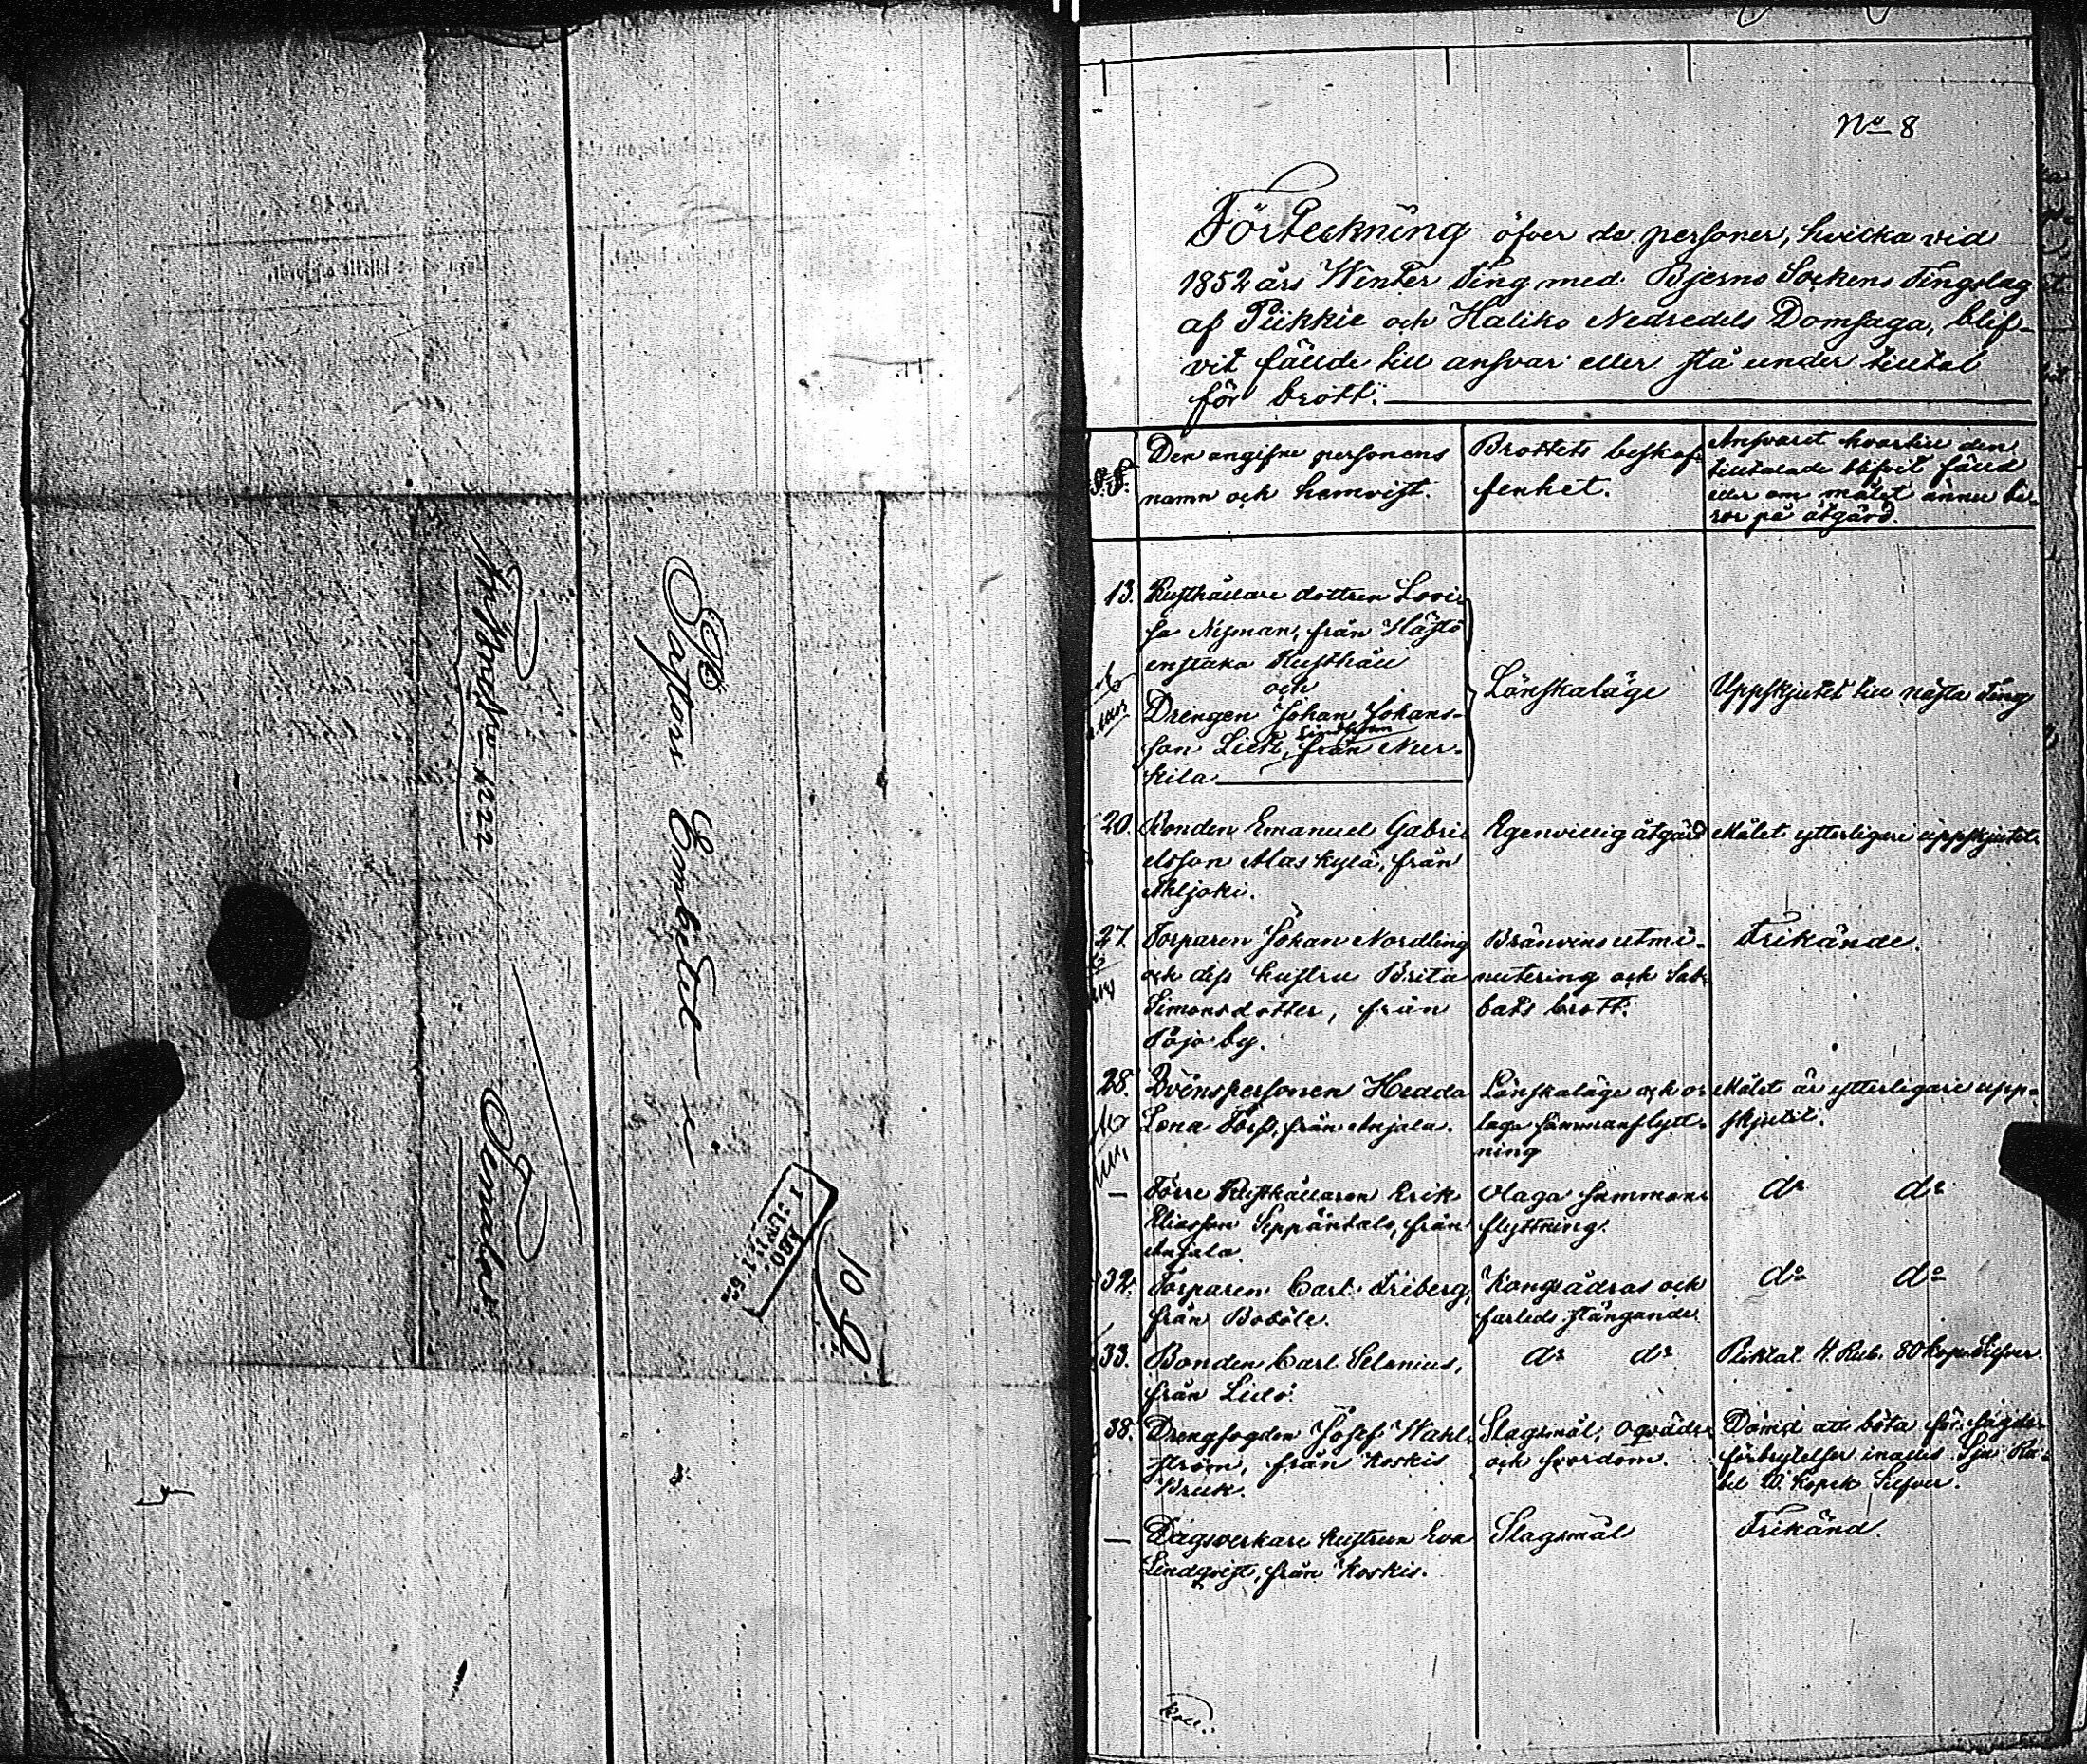 Pastors Embetet
Temala
10 S.
No 8
Förteckning öfver de personer, hvilka vid
1852 års Winter Ting med Bjerno Sockens Tingslag
af Piikkie och Haliko Nedredels Domsaga, blif-
vit fällde till ansvar eller stå under tilltal
för brott.
§.§.
Den angifne personens
namn och hemvist.
Brottets beskaf-
fenhet.
Ansvaret hvartill den
tilltalade blifvit fälld
eller om målet ännu be-
ror på åtgärd.
13. Rusthållare dottren Lovi-
sa Nyman, från Hästö
enstaka Rusthåll
och
Drengen Johan Johans-
son Lill, från
Lindholm
kila
Lönskaläge
Uppskjutet till nästa Ting
20. Bonden Emanuel Gabri-
elsson Alaskylä, från
Ahljoki.
Egenvillig åtgärd
Målet ytterligare uppskjutet.
27. Torparen Johan Nordling
och dess hustru Brita
Simonsdotter, från
Töjo by.
Bränvins utmi-
nutering och Sab-
bats brott.
Frikände.
28. Qvinspersonen Hedda
Lona Fors, från Anjala.
Lönskaläge och o-
laga sammanflytt-
ning
Målet är ytterligare upp-
skjutit.
— Förre Rusthållaren Erik
Eliasson Seppäntalo, från
Anjala
Olaga samman-
flyttning.
do do
32. Torparen Carl Friberg,
från Boböle.
Kongsådras och
farleds stängande
do do
33. Bonden Carl Selenius,
från Lidö.
do do
Pliktat 4. Rub. 80 kop. Silfver.
38. Drengfogden Josef Wahl-
ström, från Koskis
Bruk.
Slagsmål, oqväden
och svordom.
Dömd att böta för
förbrytelser inalles Sju Ru-
bel 10. Kopek Silfver.
— Dagsverkare hustrun Eva
Lindqvist, från Koskis.
Slagsmål
Frikänd.